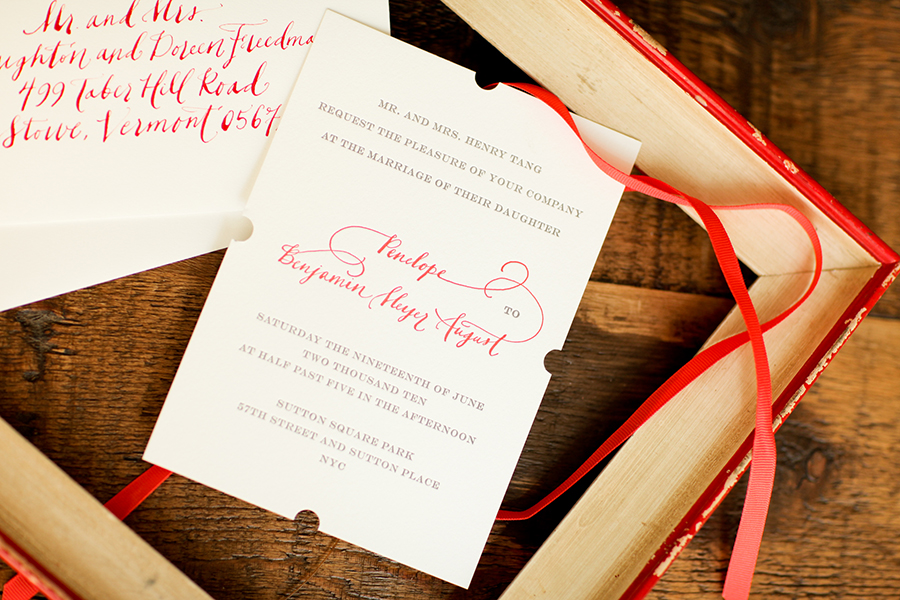 Mr. and Mrs.
and Doreen
499 Taber Hill Road
Stowe, Vermont 0567
MR. AND MRS. HENRY TANG
REQUEST THE PLEASURE OF YOUR COMPANY
AT THE MARRIAGE OF THEIR DAUGHTER
Penelope
TO
Benjamin Meyer August
SATURDAY THE NINETEENTH OF JUNE
TWO THOUSAND TEN
AT HALF PAST FIVE IN THE AFTERNOON
SUTTON SQUARE PARK
57TH STREET AND SUTTON PLACE
NYC